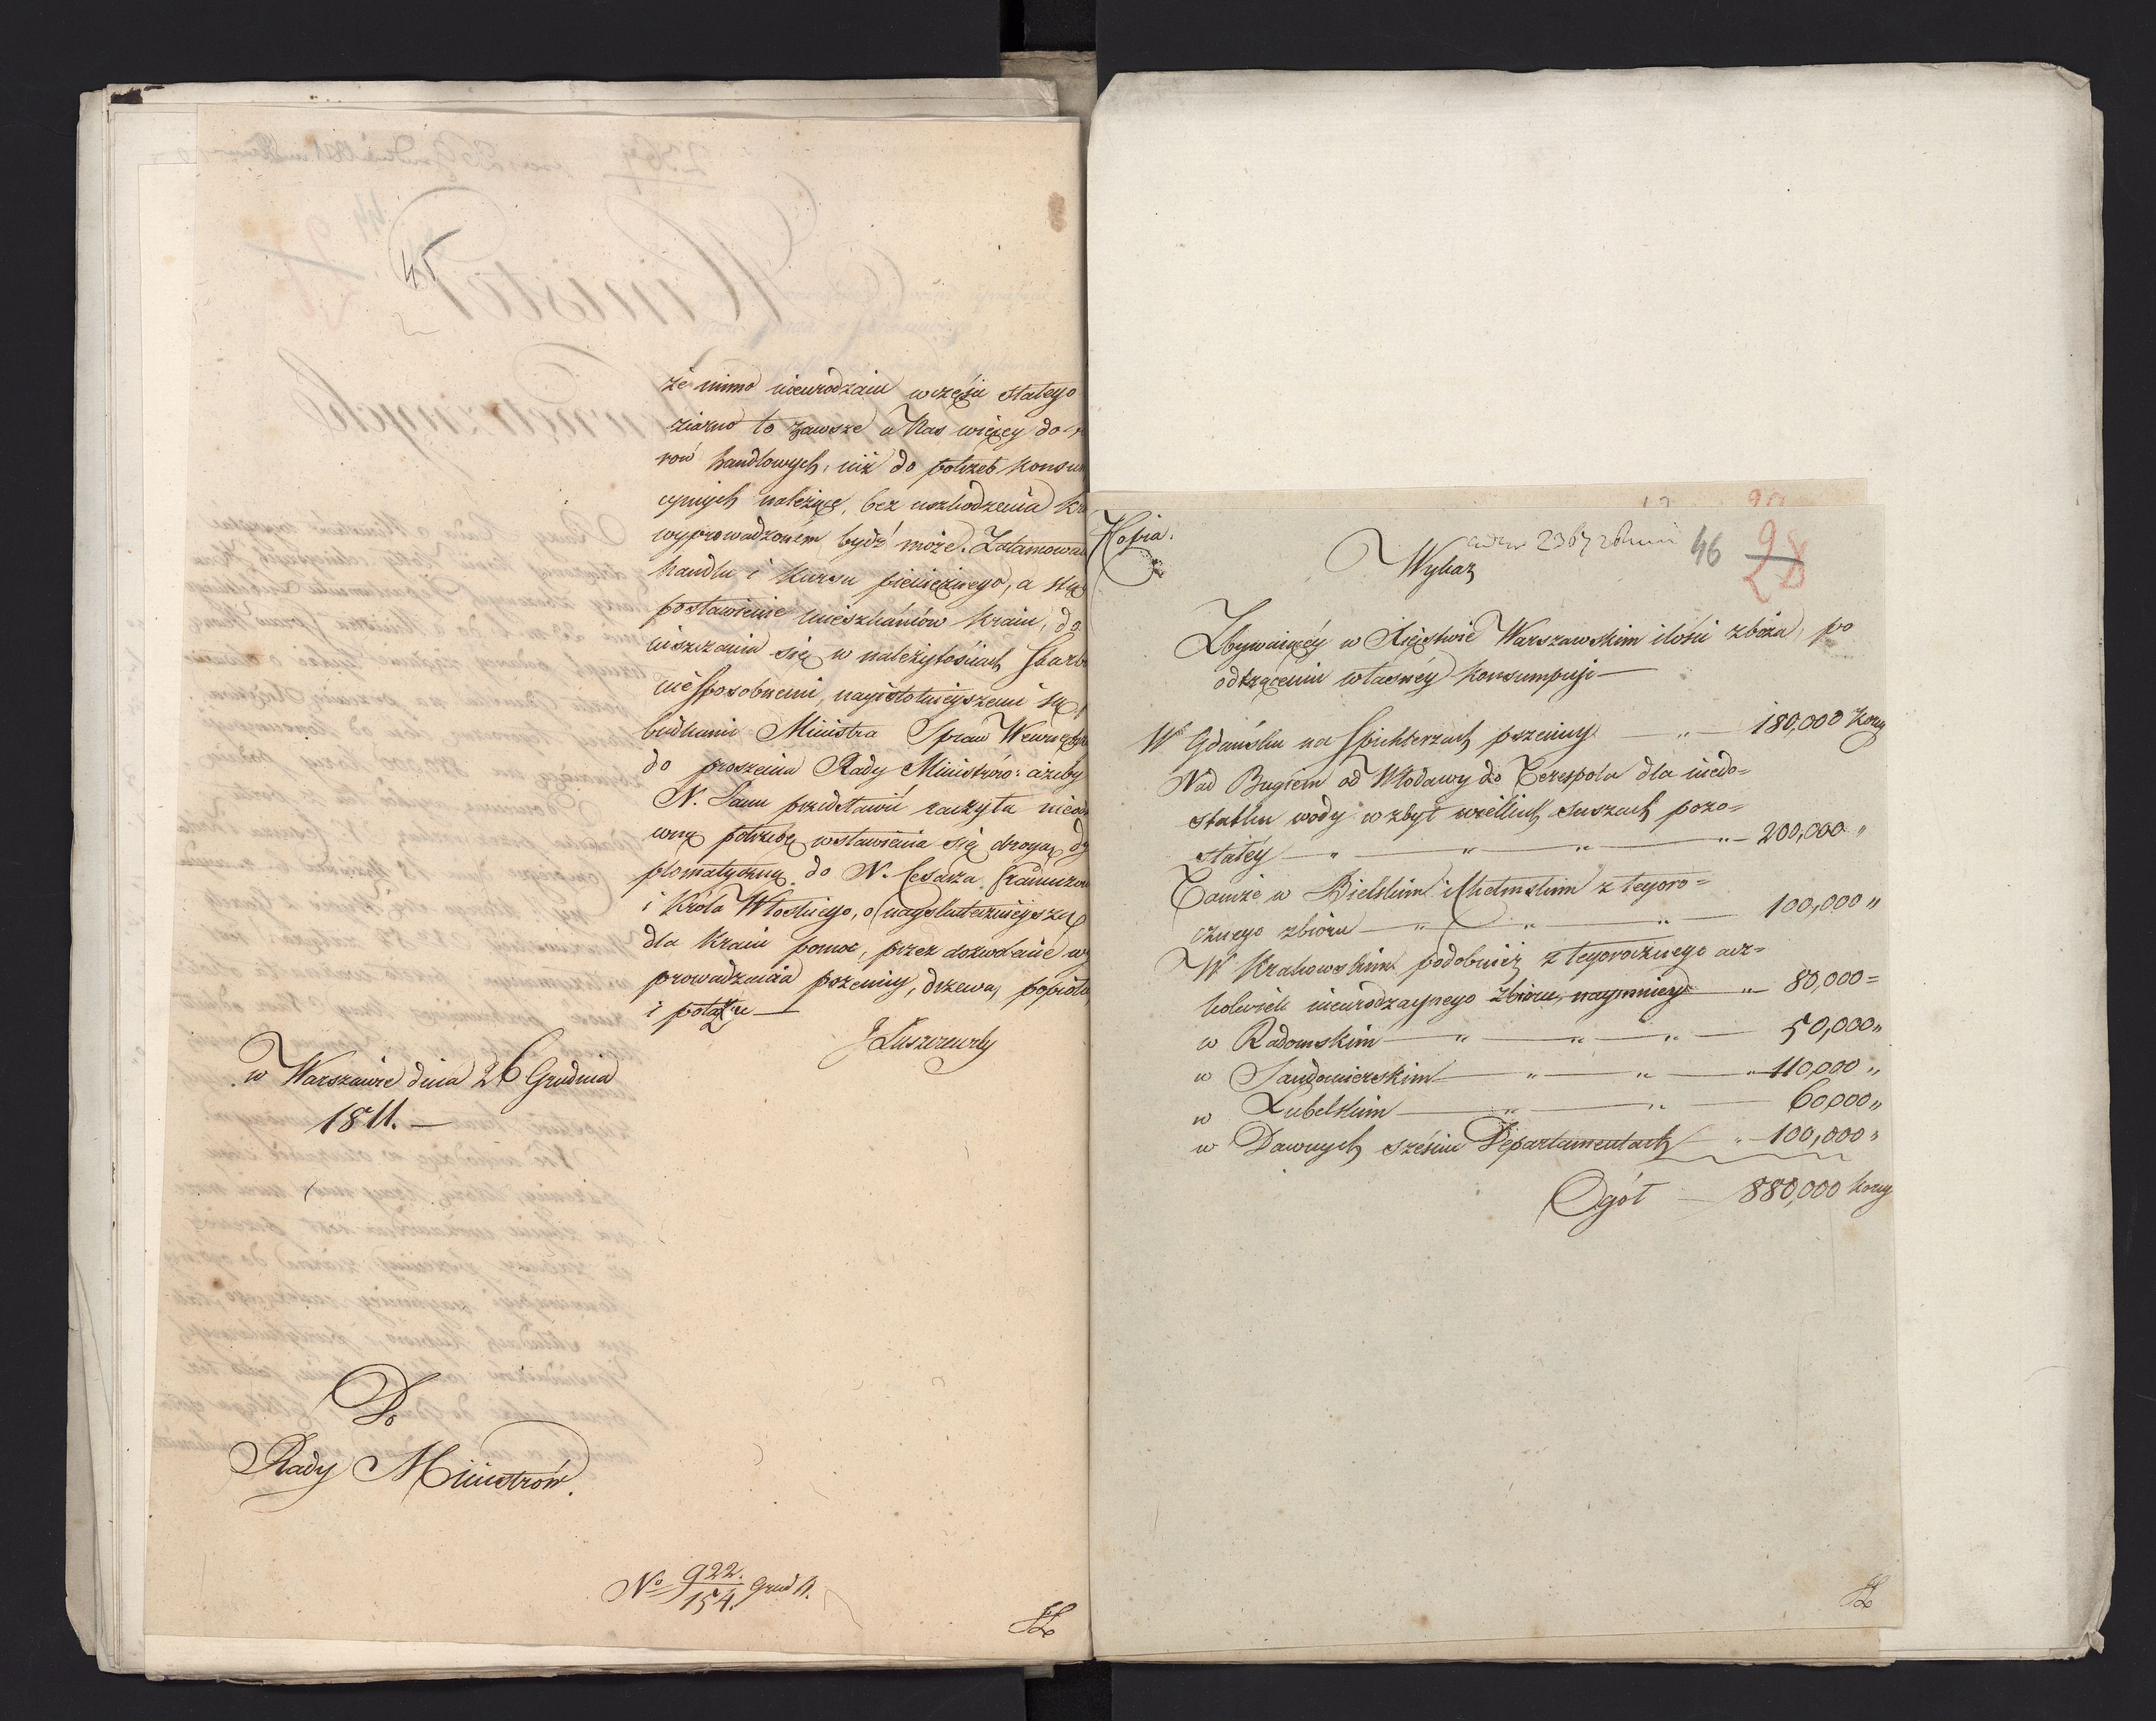 45
że mimo nieurodzaiu w części stałego
ziarno to zawsze u Nas więcey do
rów handlowych, niż do potrzeb konsum
cyinych należące, bez uszkodzenia Kra
wyprowadzoném bydź może. Zatamowan
handlu i kursu pieniężnego, a ztąd
postawienie mieszkańców kraiu, do
uiszczania się w należytościach Skarbo
niesposobnemi, nayistotnieyszemi są po
budkami Ministra Spraw Wewnętrznych
do proszenia Rady Ministrów: ażeby
N. Panu przedstawić raczyła nieod
wną potrzebę wstawienia się drogą dy
plomatyczną do N. Cesarza Francuzów
i Króla Włoskiego, o nayskutecznieyszą
dla Kraiu pomoc, przez dozwolenie wy
prowadzenia pszenicy, drzewa, popiołu
i potażu —
J Łuszczewski
w Warszawie dnia 26 Grudnia
1811. —
Do
Rady Ministrów.
No 922./154. Grud 11.
Kopia.
2367 46 28
Wykaz
Zbywaiącéy w Xięstwie Warszawskim ilości zboża, po
odtrąceniu własnéy konsumpcji —
W Gdańsku na Spichlerzach pszenicy — „ — 180,000 Korcy
Nad Bugiem od Włodawy do Terespola dla niedo=
statku wody w zbyt wielkich suszach pozo=
stałéy — „ — „ — „ — „ — 200,000 „
Tamże w Bielskim i Chełmskim z tegoro=
cznego zbioru — „ — „ — „ — 100,000 „
W Krakowskim podobnież z tegorocznego acz=
kolwiek nieurodzaynego zbioru, naymniey — „ — 80,000 =
w Radomskim — „ — „ — „ — 50,000 „
w Sandomierskim — „ — „ — „ 110,000 „
w Lubelskim — „ — „ — 60,000 „
w Dawnych sześciu Departamentach — „ — 100,000 „
Ogół — 880,000 korcy